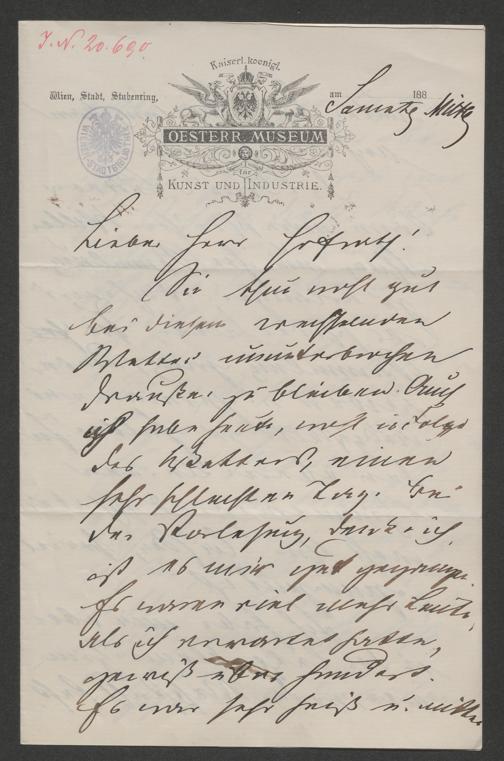 J. N. 20.690
Kaiserl. koenigl.
Wien, Stadt, Stubenring, am 188
Samstg Mittg
OESTERR. MUSEUM
für
KUNST UND INDUSTRIE.
Lieber Herr Hofrath!
Sie thun wohl gut
bei diesem wechselnden
Wetter ununterbrochen
draußen zu bleiben. Auch
ich habe heute, wohl in Folge
des Wetters, einen
sehr schlechten Tag. Bei
der Vorlesung, denke ich,
ist es mir gut gegangen.
Es waren viel mehr Leute,
als ich erwartet hatte,
gewiß über hundert.
Es war sehr heiß u. mitten